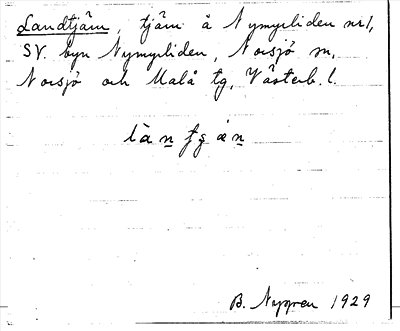 Landtjärn, tjärn å Nymyrliden nr 1,
SV. byn Nymyrliden, Norsjö sn,
Norsjö och Malå tg, Västerb. l.
B. Nygren 1929